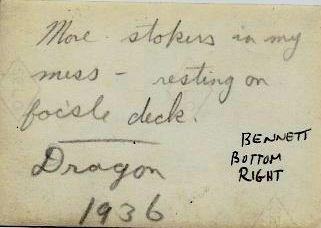 More stokers in my
mess - resting on
foc'sle deck.
Dragon
1936
BENNETT
BOTTOM
RIGHT